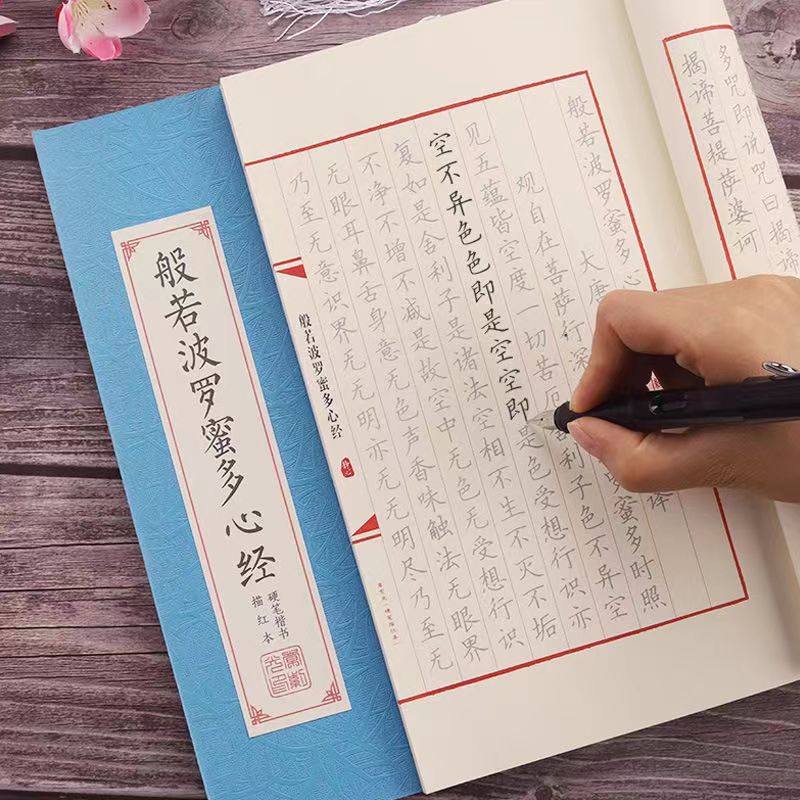 般若波罗蜜多心经
硬笔楷书
描红本
多咒即说咒曰揭谛
揭谛菩提萨婆诃
般若波罗蜜多心
大唐 译
观自在菩萨行深 罗蜜多时照
见五蕴皆空度一切苦厄 利子色不异空
空不异色色即是空空即是色受想行识亦
复如是舍利子是诸法空相不生不灭不垢
不净不增不减是故空中无色无受想行识
无眼耳鼻舌身意无色声香味触法无眼界
乃至无意识界无无明亦无无明尽乃至无
般若波罗蜜多心经